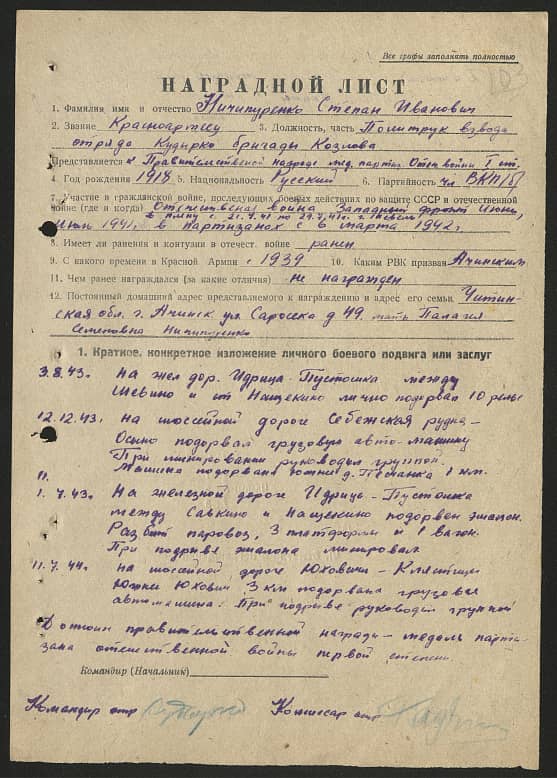 Все графы заполнять полностью
НАГРАДНОЙ ЛИСТ
1. Фамилия имя и отчество Ничипуренко Степан Иванович
2. Звание Красноармеец 3. Должность, часть Политрук взвода
отряда Кудирко бригады Козлова
Представляется к Правительственой награде мед. партиз. Отеч войны I ст.
4. Год рождения 1918 5. Национальность Русский 6. Партийность чл ВКП/б/
7. Участие в гражданской войне, последующих боевых действиях по защите СССР и отечественной
войне (где и когда) Отечественая война Западный фронт Июнь,
Июль 1941г. в партизанах с 6 марта 1942г.
8. Имеет ли ранения и контузии в отечест. войне ранен
9. С какого времени в Красной Армии с 1939 10. Каким РВК призван Ачинским
11. Чем ранее награждался (за какие отличия) не награжден
12. Постоянный домашний адрес представляемого к награждению и адрес его семьи Читин-
ская обл. г. Ачинск ул д 49. мать Палагея
Семеновна Ничипуренко
1. Краткое, конкретное изложение личного боевого подвига или заслуг
3.8.43г. на жел дор. Идрица-Пустошка между
и ст Нащекино лично подорвал 10 рельс
12.12.43. на шоссейной дороге Себежская рудня-
Осыно подорвал грузовую авто-машину
При минировании руководил группой.
Машина подорвана южней д. 1 км.
11.
1.7.43г На железной дороге Идрица-Пустошка
между Савкино и Нащекино подорвен эшалон.
Разбит паровоз, 3 платформы и 1 вагон.
При подрыве эшалона минировал
11.7.44г. на шоссейной дороге Юховичи-Клястицы
Южней Юхович 3 км подорвана грузовая
автомашина. При подрыве руководил группой
Достоин правительственной награды - медаль парти-
зана отечественной войны первой степени.
Командир (Начальник)
Командир отр Комиссар отр